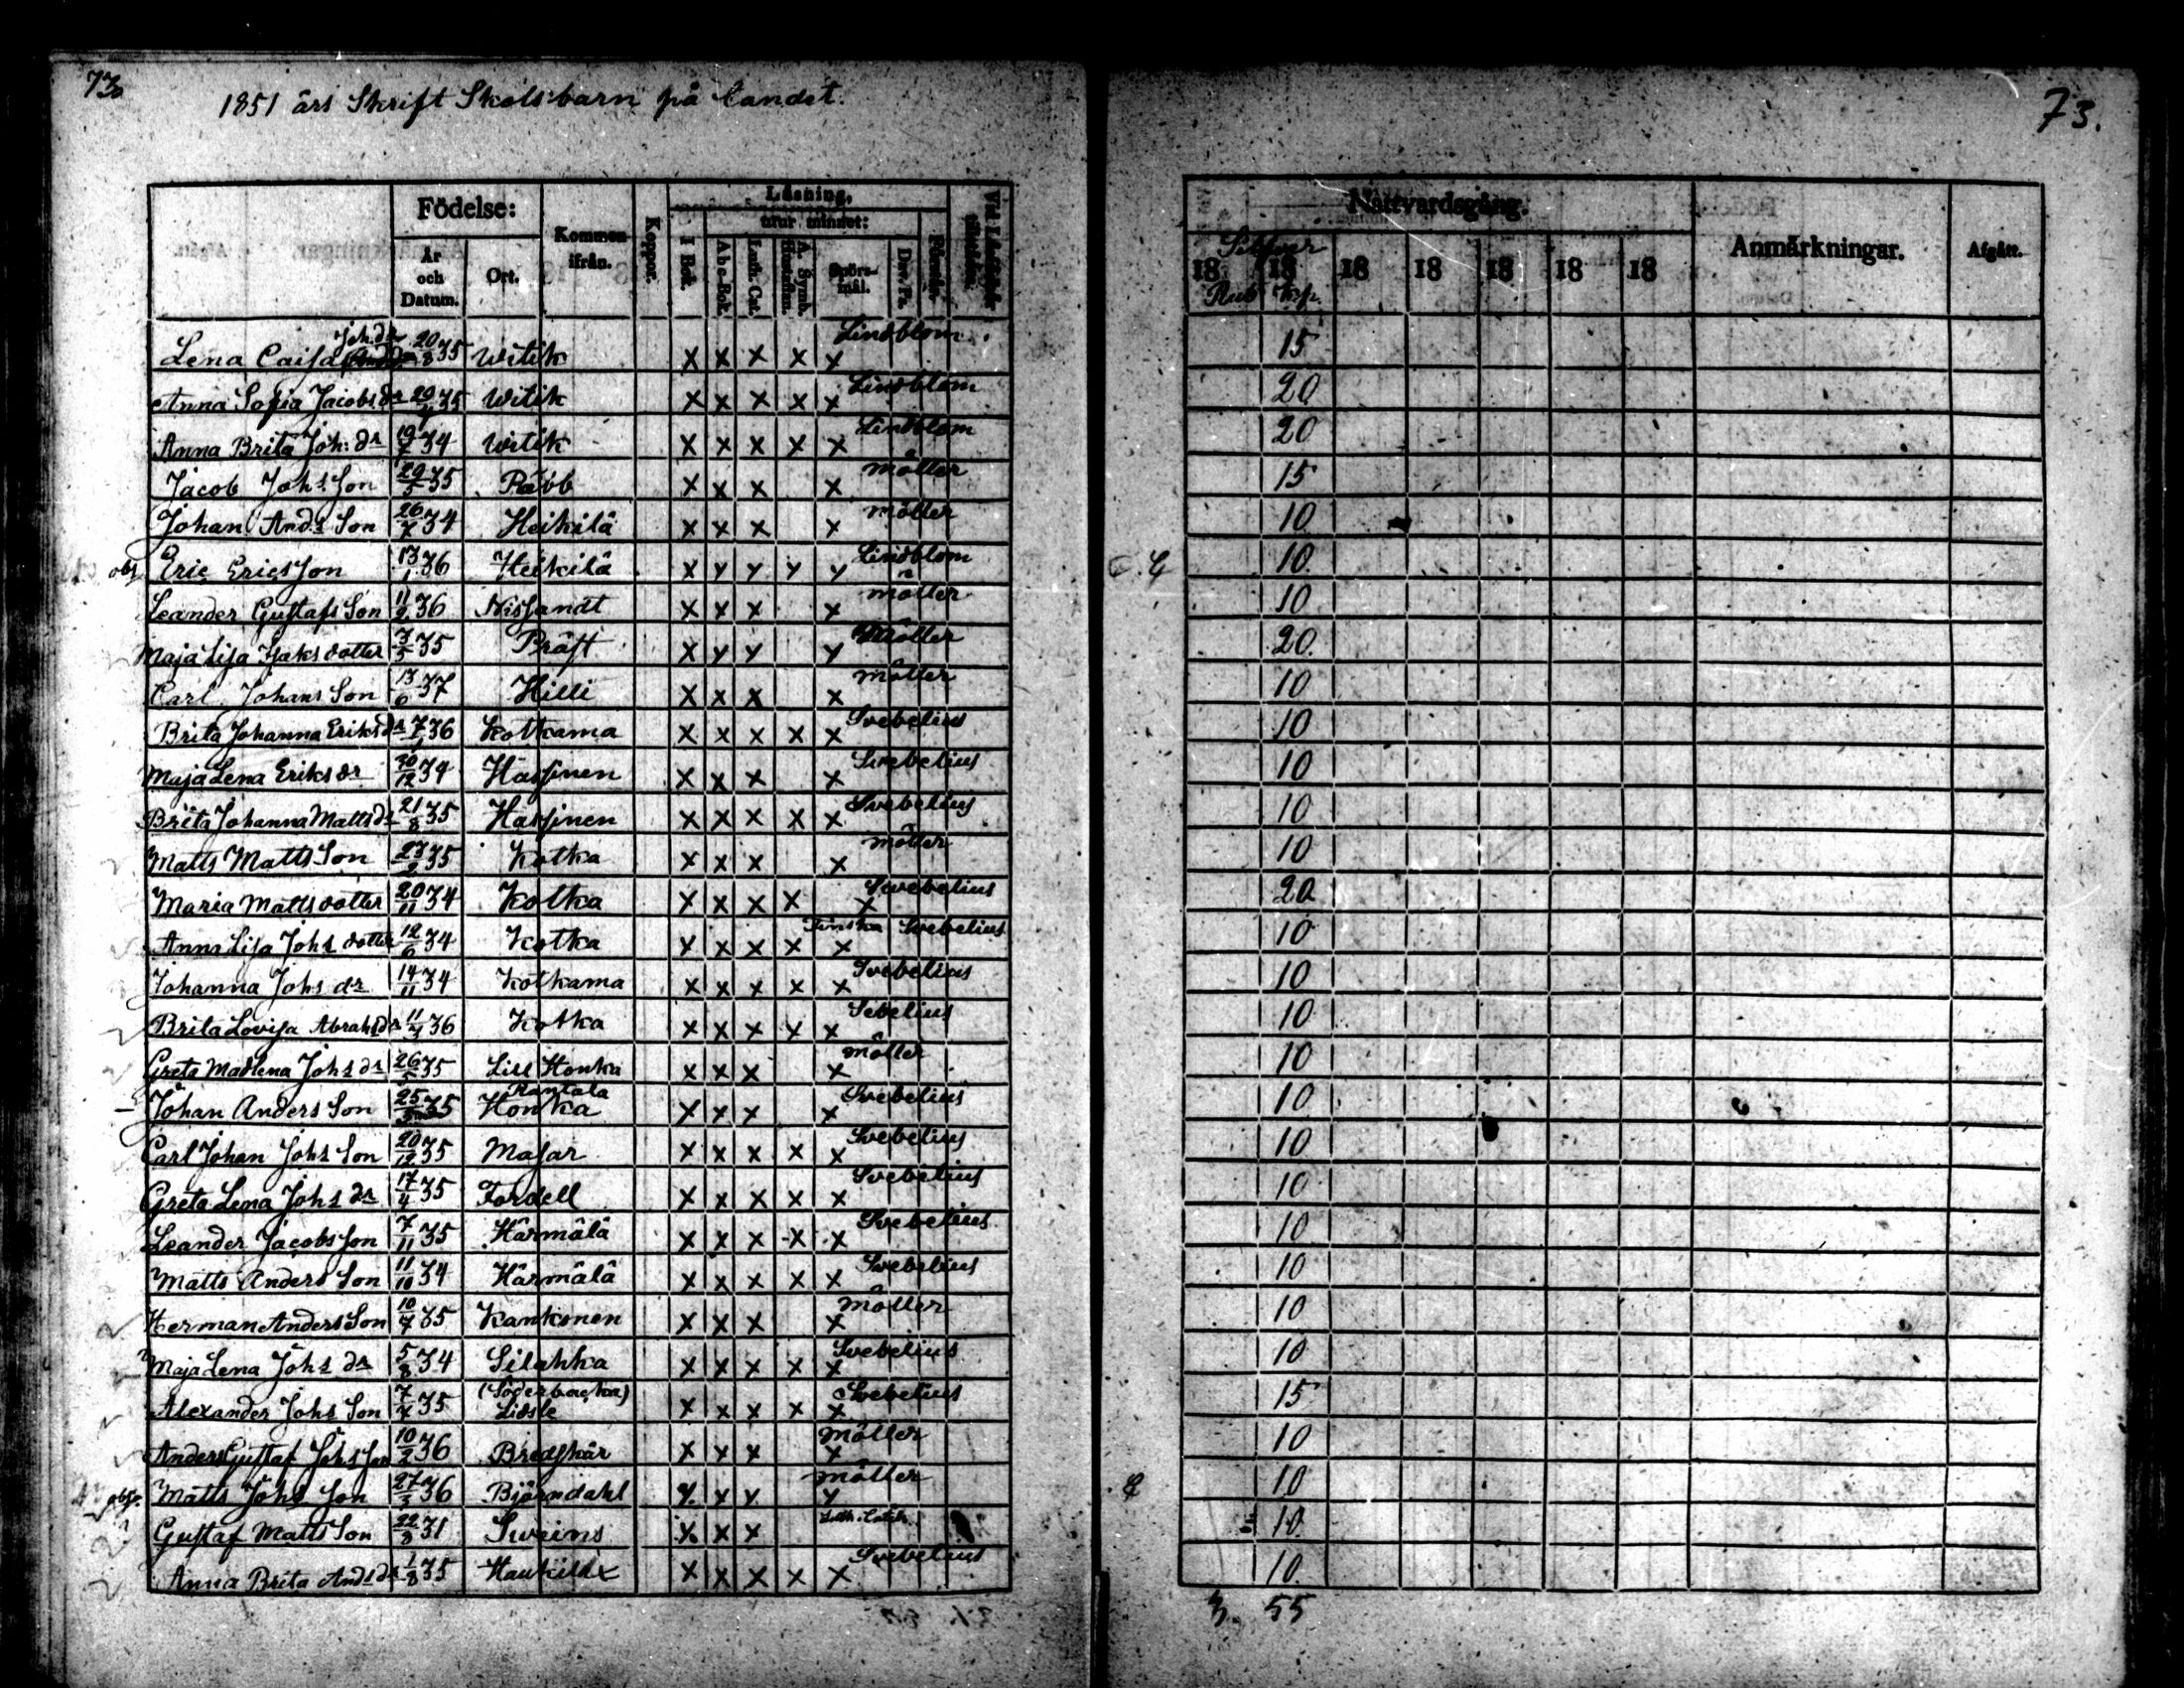 73
1851 års Skrift Skolsbarn på Landet.
73.
Födelse:
År och Datum.
Ort.
Kommen ifrån.
Koppor.
Läsning,
utur minnet:
I Bok.
A b c-Bok.
Luth. Cat.
A. Symb. Hustaflan.
Spörsmål.
Dav. Ps.
Nattvardsgång.
Silfver
18 18 18 18 18 18 18
Rub kp.
Anmärkningar.
Afgått.
Lena Caisa Joh. dr 20/8 35 Witik x x x x x Lindblom 15
Anna Sofia Jacobs dr 29 35 Witik x x x x x Lindblom 20
Anna Brita Joh: dr 19/7 34 Witik x x x x x Lindblom 20
Jacob Johs Son 29/5 35 Räbb x x x x möller 15
Johan Ands Son 26/7 34 Heikilä x x x x möller 10
obs Eric Ericsson 13/1 36 Heikilä x y y y y Lindblom 10
Leander Gustafs Son 11/2 36 Nissandt x x x x möller 10
Maja Lisa Isaks dotter 3/5 35 Präst x y y y Möller 20
Carl Johans Son 13/6 37 Hilli x x x x möller 10
Brita Johanna Eriks dr 7/1 36 Kotkama x x x x x Svebelius 10
Maja Lena Eriks dr 30/12 34 Hassinen x x x x Svebelius 10
Brita Johanna Matts dr 21/8 35 Hassinen x x x x x Svebelius 10
Matts Matts Son 27/2 35 Kotka x x x x möller 10
Maria Matts dotter 20/11 34 Kotka x x x x x Svebelius 20
Anna Lisa Johs dotter 12/6 34 Kotka x x x x x Finska Svebelius 10
Johanna Johs dr 14/11 34 Kotkama x x x x x Svebelius 10
Brita Lovisa Abrahs dr 11/4 36 Kotka x x x x x Sebelius 10
Greta Madlena Johs dr 26/5 35 Lill Honka x x x x möller 10
Johan Anders Son 25 35 Rantala Honka x x x x Svebelius 10
Carl Johan Johs Son 20/12 35 Masar x x x x x Svebelius 10
Greta Lena Johs dr 17/4 35 Fordell x x x x x Svebelius 10
Leander Jacobs son 7/11 35 Härmälä x x x x x Svebelius 10
Matts Anders Son 11/10 34 Härmälä x x x x x Svebelius 10
Herman Anders Son 10/7 35 Kankonen x x x x Möller 10
Maja Lena Johs dr 5/8 34 Silahka x x x x x Svebelius 10
Alexander Johs Son 7/7 35 (Söderbacka) Lidsle x x x x x Svebelius 15
Anders Gustaf Johs Son 10/2 36 Bredskär x x x x Möller 10
obs. Matts Johs Son 27/3 36 Björndahl y y y y möller 10
Gustaf Matts Son 22/8 31 Sweins x x x Luth. Catch. 10
Anna Brita Ands dr 1/8 35 x x x x x Svebelius 10
3. 55